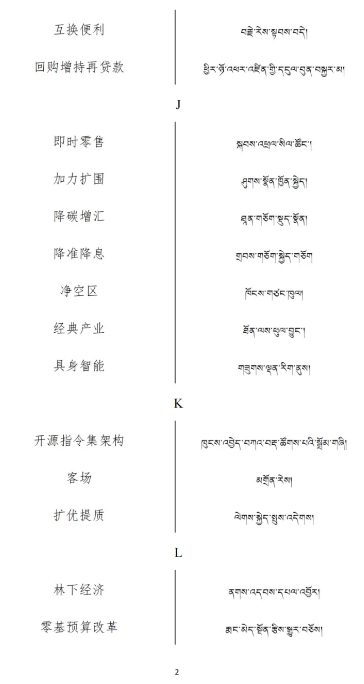 互换便利 བརྗེ་རེས་སྟབས་བདེ།
回购增持再贷款 ཕྱིར་ཉོ་འཕར་འཛིན་གྱི་དངུལ་བུན་བསྐྱར་མ།
J
即时零售 སྐབས་འཕྲལ་སིལ་ཚོང་།
加力扩围 ཤུགས་སྣོན་ཁྱོན་སྐྱེད།
降碳增汇 ཐན་གཅོག་སྡུད་སྣོན།
降准降息 གྲབས་གཅོག་སྐྱེད་གཅོག
净空区 ཁོངས་གཙང་ཁུལ།
经典产业 ཐོན་ལས་ཕུལ་བྱུང་།
具身智能 གཟུགས་ལྡན་རིག་ནུས།
K
开源指令集架构 ཁུངས་འབྱེད་བཀའ་བརྡ་ཚོགས་པའི་སྒྲོམ་གཞི།
客场 མགྲོན་རེས།
扩优提质 ལེགས་སྐྱེད་སྤུས་འདེགས།
L
林下经济 ནགས་འདབས་དཔལ་འབྱོར།
零基预算改革 རྨང་མེད་སྔོན་རྩིས་སྒྱུར་བཅོས།
2